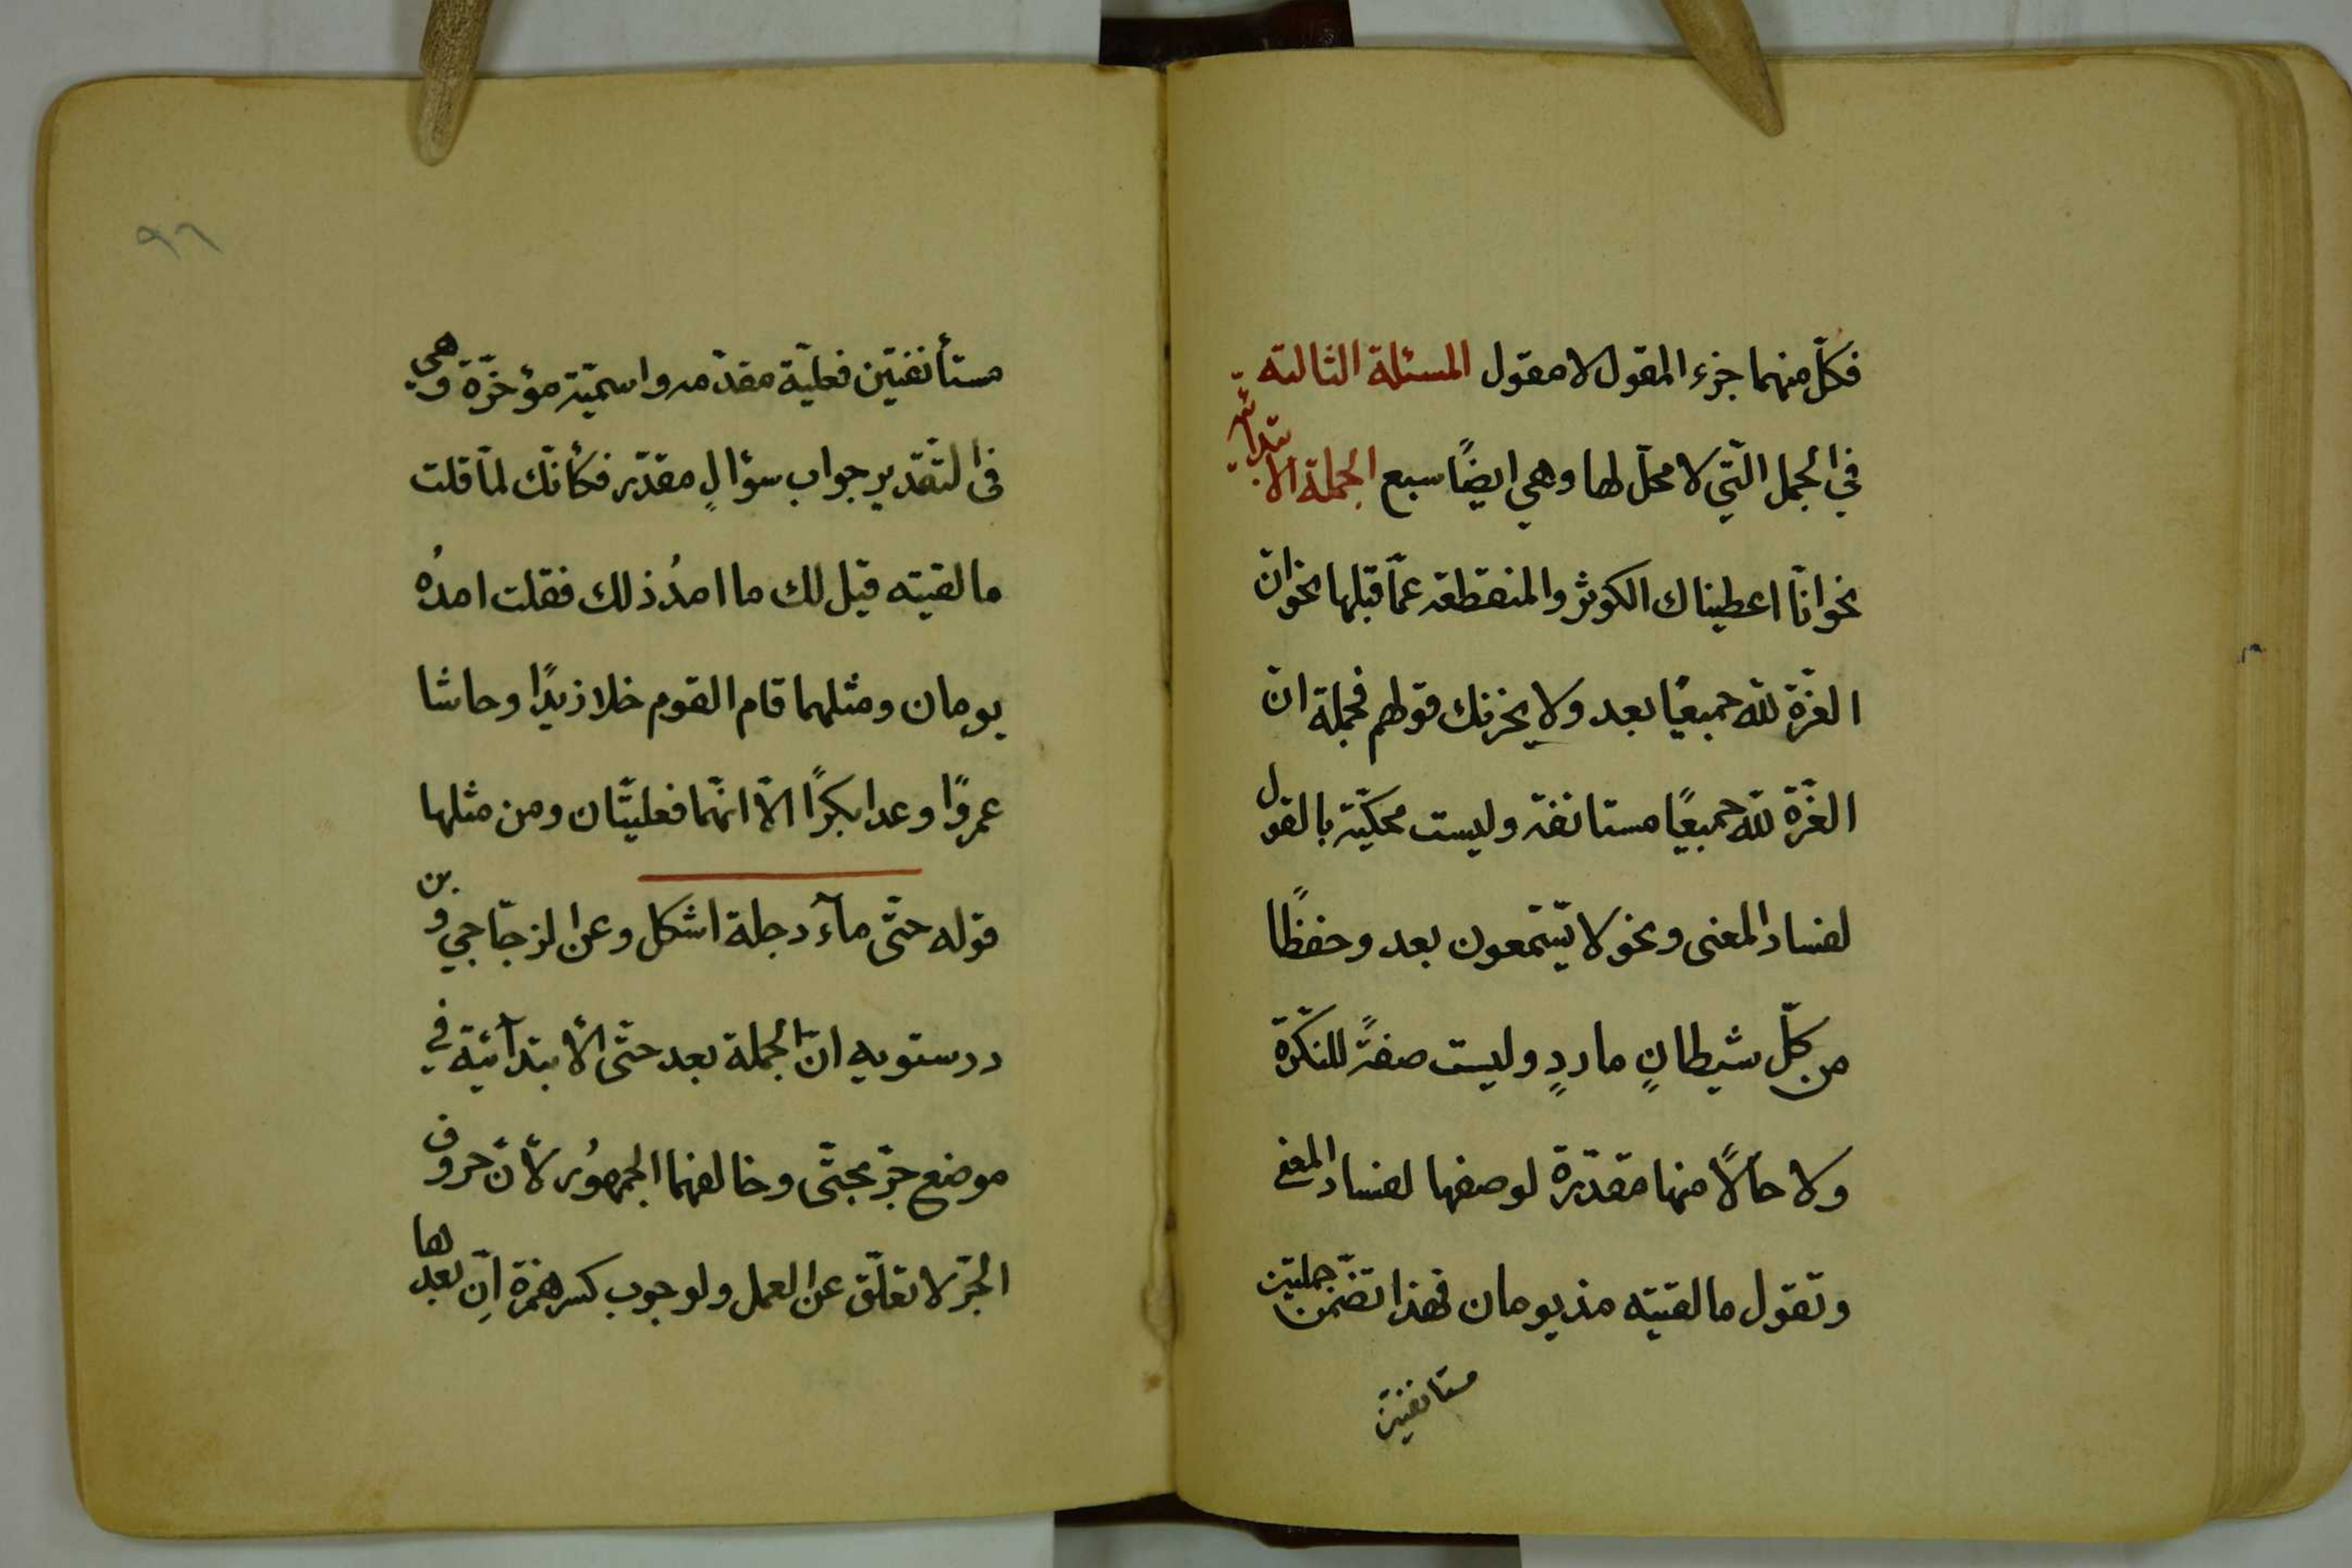 فكلّ منهما جزء المقول لا مقول المسئلة الثالثة
في الجمل الّتي لا محلّ لها وهي ايضًا سبع الجملة الابتدائية
نحو انّا اعطيناك الكوثر والمنقطعة عمّا قبلها نحو انّ
العزّة لله جميعًا بعد ولا يحزنك قولهم فجملة انّ
العزّة لله جميعًا مستانفة وليست محكيّة بالقول
لفساد المعنى ونحو لا يسّمعون بعد وحفظًا
من كلّ شيطانٍ ماردٍ وليست صفةً للنكرة
ولا حالًا منها مقدّرة لوصفها لفساد المعنى
وتقول ما لقيته مذ يومان فهذا تضمّن جملتين
مستانفتين
٩٦
مستأنفتين فعليّة مقدّمه واسميّة مؤخرّة وهي
في التّقدير جواب سؤالٍ مقدّر فكأنّك لمّا قلت
ما لقيته قيل لك ما امدُ ذلك فقلت امدُه
يومان ومثلهما قام القوم خلا زيدًا وحاشا
عمروًا وعدا بكرًا الّا انهّما فعليتّان ومن مثلها
قوله حتّى مآء دجلة اشكل وعن الزجّاجي وبن
درستويه انّ الجملة بعد حتّى الأبتدآئيّة في
موضع جرّ بحتّى وخالفهما الجمهوُر لأنّ حروف
الجرّ لا تعلّق عن العمل ولوجوب كسر همزة اِنّ بعدها